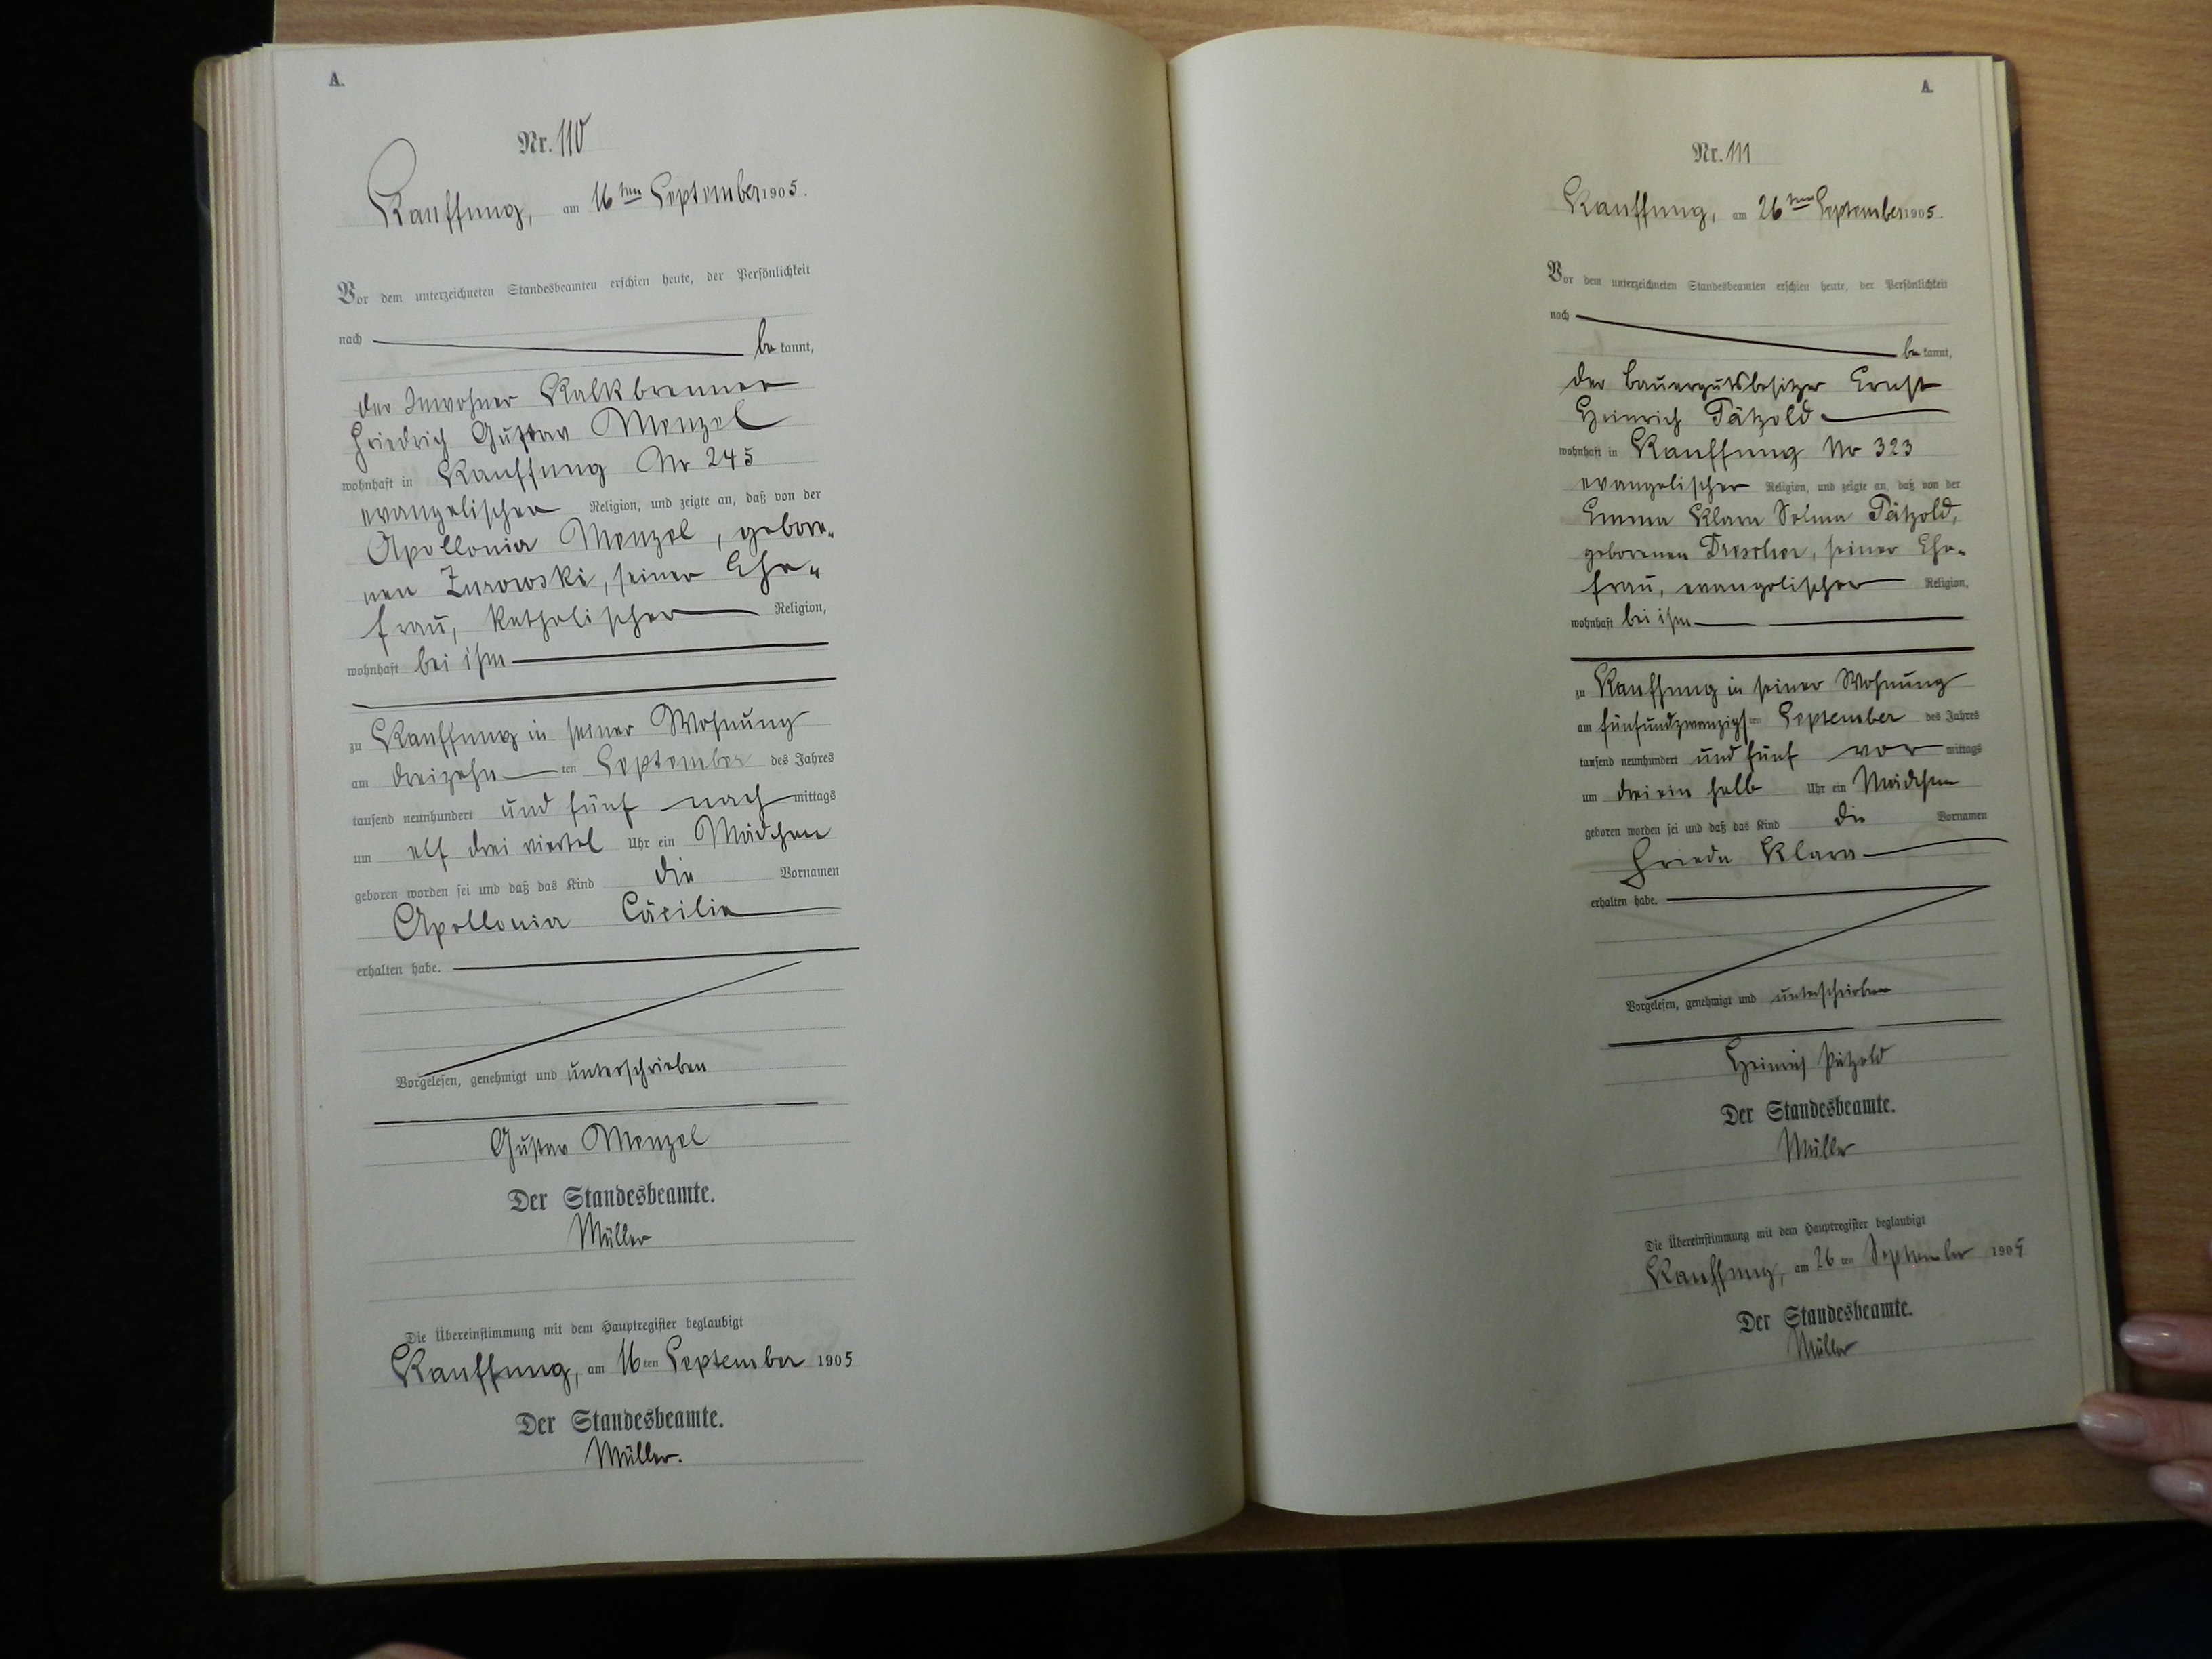 A.
Nr. 110
Kauffung, am 16ten September 1905.
Vor dem unterzeichneten Standesbeamten erschien heute, der Persönlichkeit
nach be kannt,
der Inwohner Kalkbrenner
Friedrich Gustav Menzel
wohnhaft in Kauffung Nr 245
evangelischer Religion, und zeigte an, daß von der
Apollonia Menzel, gebore-
nen Zurowski, seiner Ehe-
frau, katholischer Religion,
wohnhaft bei ihm
zu Kauffung in seiner Wohnung
am dreizehn ten September des Jahres
tausend neunhundert und fünf nach mittags
um elf drei viertel Uhr ein Mädchen
geboren worden sei und daß das Kind die Vornamen
Apollonia Cäcilie
erhalten habe.
Vorgelesen, genehmigt und unterschrieben
Gustav Menzel
Der Standesbeamte.
Müller
Die Übereinstimmung mit dem Hauptregister beglaubigt
Kauffung, am 16ten September 1905
Der Standesbeamte.
Müller.
A.
Nr. 111
Kauffung, am 26ten September 1905.
Vor dem unterzeichneten Standesbeamten erschien heute, der Persönlichkeit
nach be kannt,
der Bauergutsbesitzer Ernst
Heinrich Pätzold
wohnhaft in Kauffung Nr 323
evangelischer Religion, und zeigte an, daß von der
Emma Klara Selma Pätzold,
geborenen Drescher, seiner Ehe-
frau, evangelischer Religion,
wohnhaft bei ihm
zu Kauffung in seiner Wohnung
am fünfundzwanzigsten September des Jahres
tausend neunhundert und fünf vor mittags
um drei ein halb Uhr ein Mädchen
geboren worden sei und daß das Kind die Vornamen
Frieda Klara
erhalten habe.
Vorgelesen, genehmigt und unterschrieben
Heinrich Pätzold
Der Standesbeamte.
Müller
Die Übereinstimmung mit dem Hauptregister beglaubigt
Kauffung, am 26ten September 1905
Der Standesbeamte.
Müller